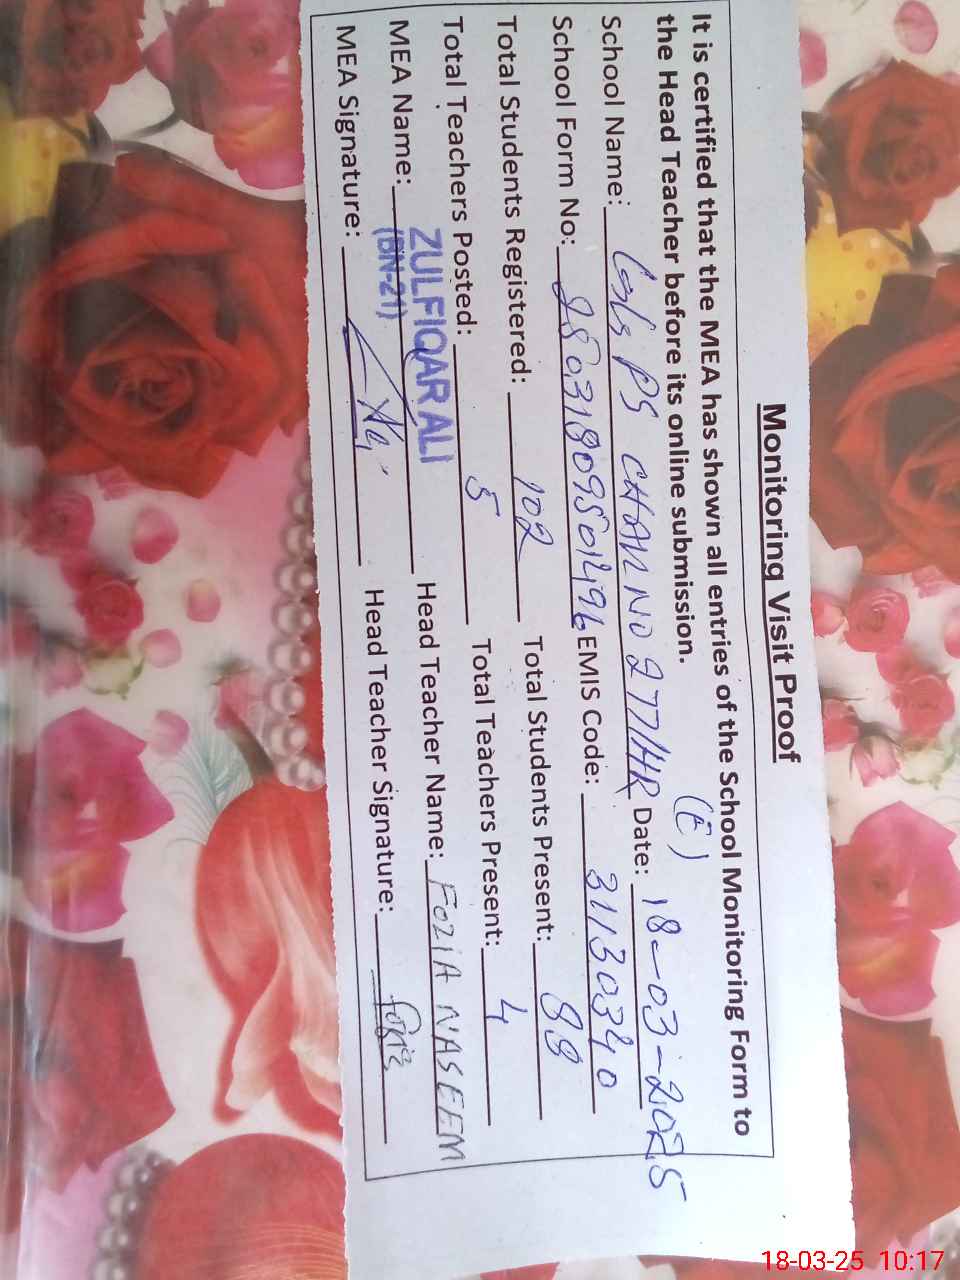 Monitoring Visit Proof
It is certified that the MEA has shown all entries of the School Monitoring Form to
the Head Teacher before its online submission.
(E)
School Name: GGPS CHAK NO 277/HR Date: 18-03-2025
School Form No: 25031809501496 EMIS Code: 31130340
Total Students Registered: 102 Total Students Present: 88
Total Teachers Posted: 5 Total Teachers Present: 4
MEA Name: ZULFIQAR ALI Head Teacher Name: FOZIA NASEEM
(BN-21)
MEA Signature: Head Teacher Signature: Fozia
18-03-25 10:17